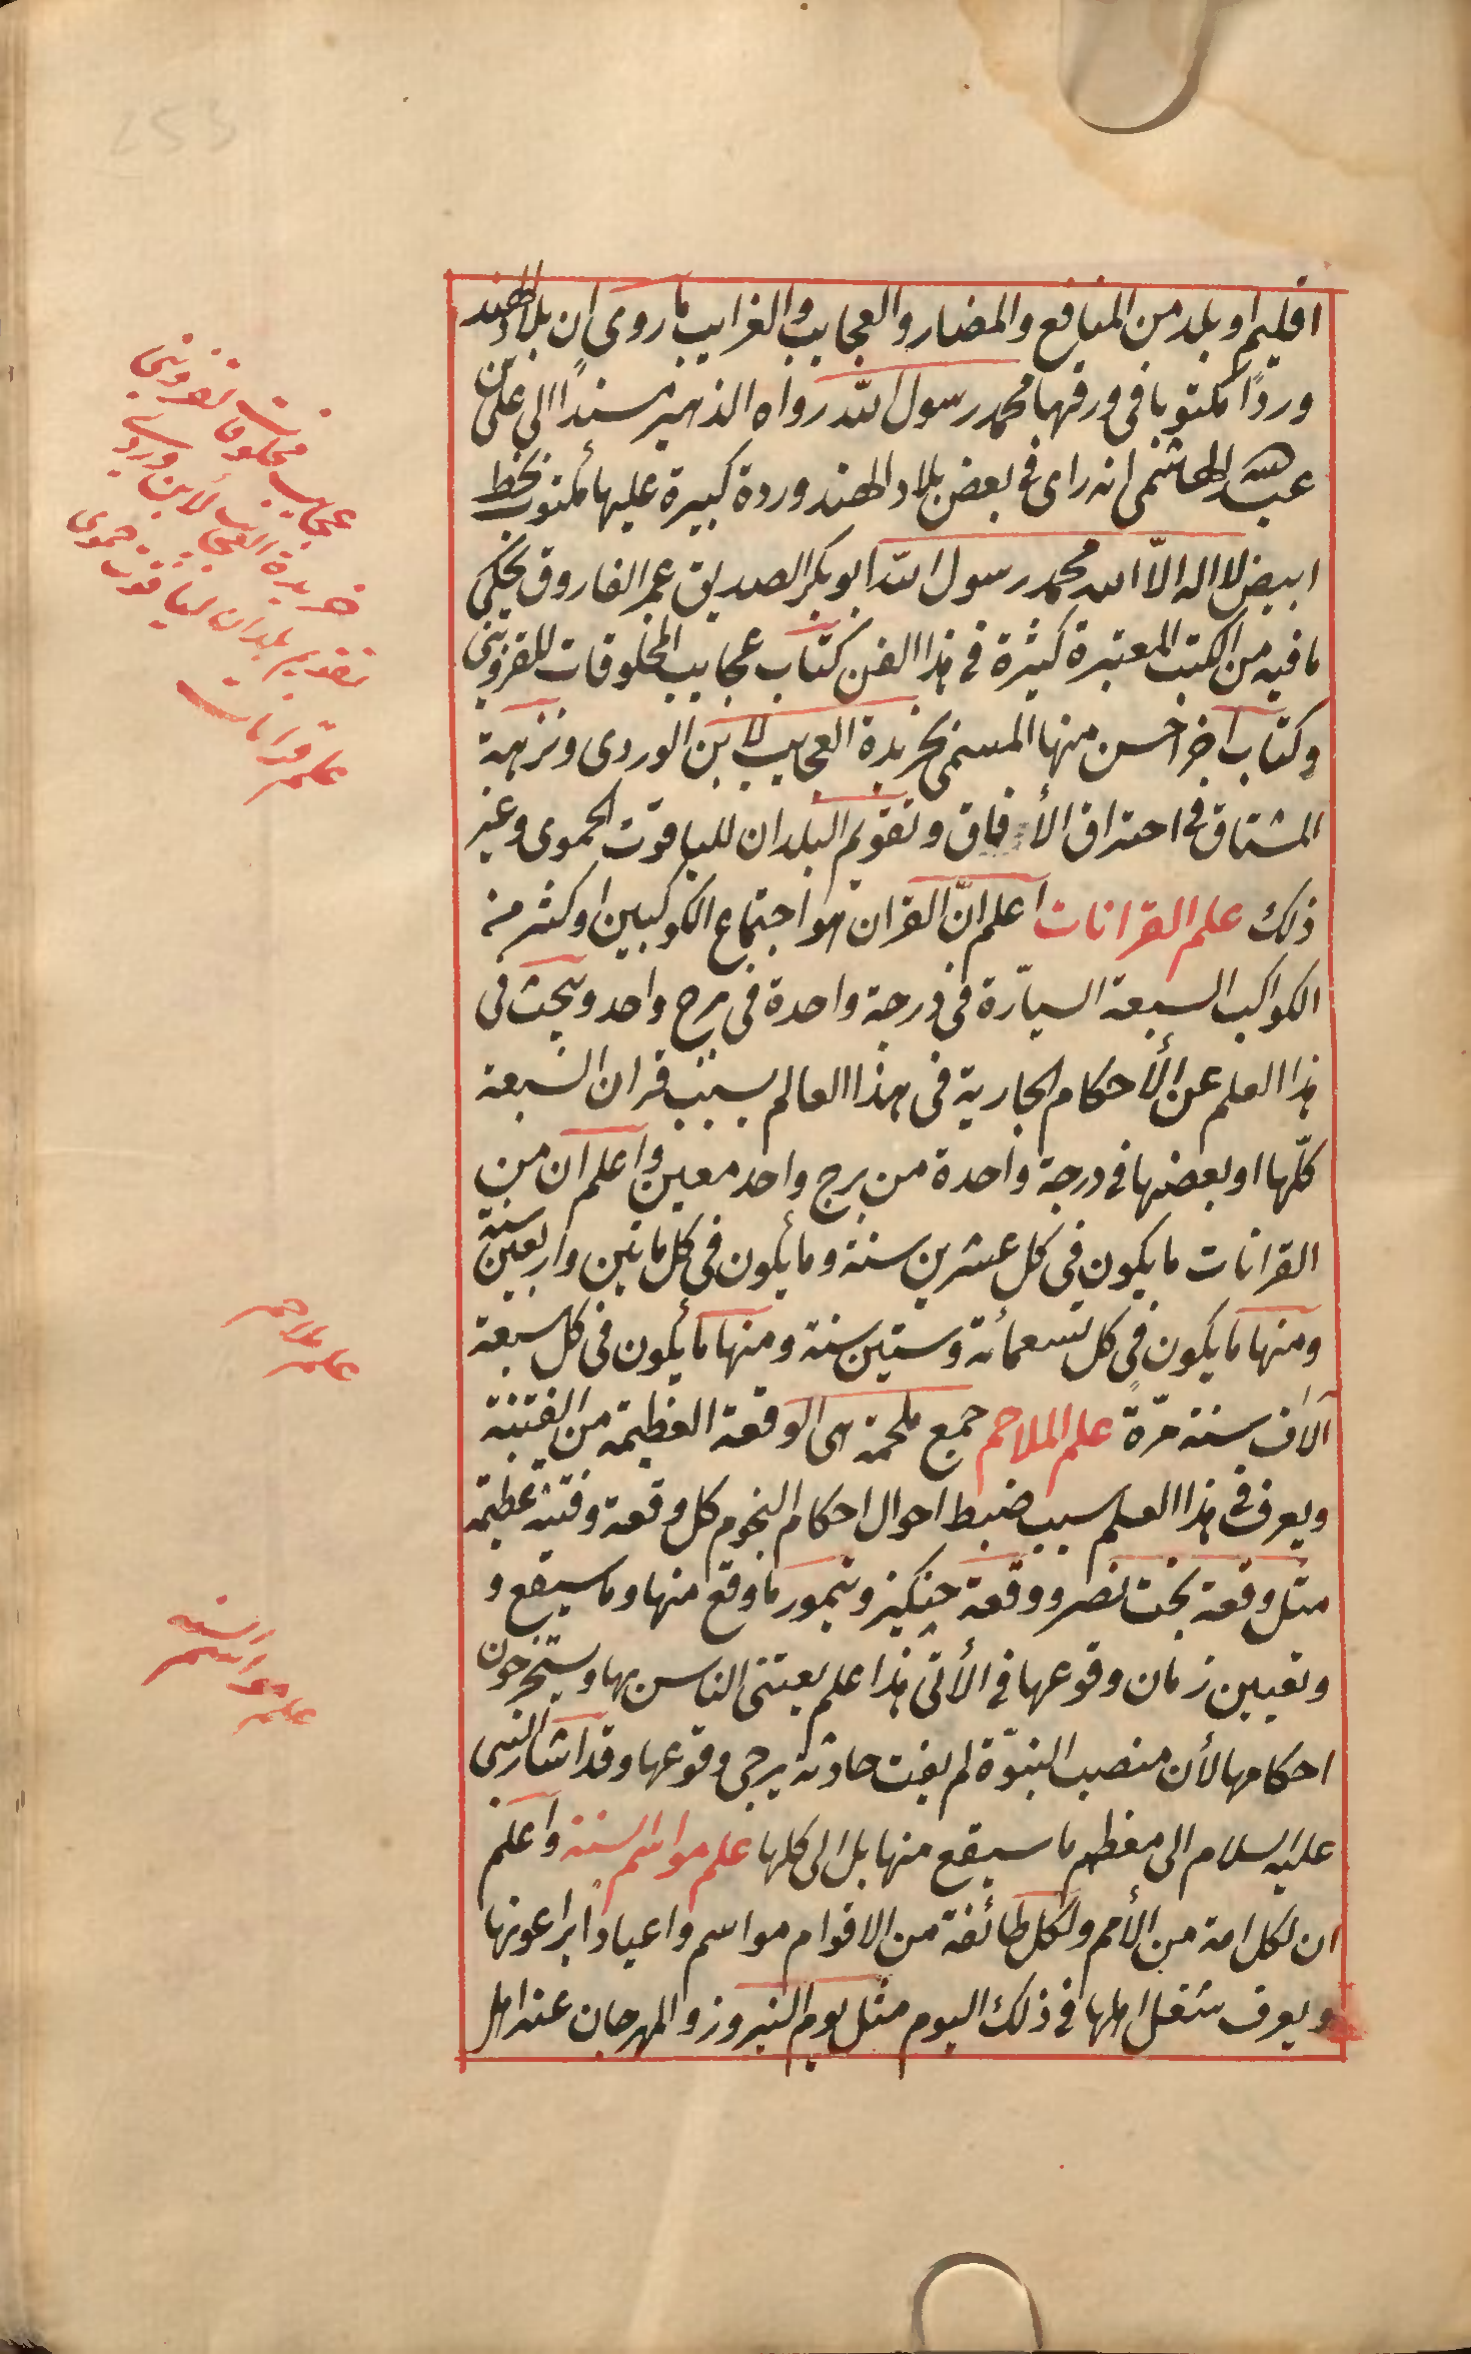 اقليم او بلد من المنافع والمضار والعجايب والغرايب ما روى ان بلاد الهند
وردًا مكتوبا فى ورقها محمد رسول الله رواه الذهبى مسندًا الى على بن
عبد الله الهاشمى انه راى فى بعض بلاد الهند وردة كبيرة عليها مكتوب بخط
ابيض لا اله الّا الله محمد رسول الله ابو بكر الصديق عمر الفاروق يحكى
ما فيه من الكتب المعتبرة كثيرة فى هذا الفن كتاب عجايب المخلوقات للقزوينى
وكتاب اخر احسن منها المسمى بخريدة العجايب لابن الوردى ونزهة
المشتاق فى احتراق الأفاق وتقويم البلدان للياقوت الحموى وغير
ذلك علم القرانات اعلم انّ القران هو اجتماع الكوكبين او كثر من
الكواكب السبعة السيّارة فى درجة واحدة فى برج واحد ويبحث فى
هذا العلم عن الأحكام الجارية فى هذا العالم بسبب قران السبعة
كلّها او بعضها فى درجة واحدة من برج واحد معين واعلم ان من
القرانات ما يكون فى كل عشرين سنة وما يكون فى كل مأتين واربعين سنة
ومنها ما يكون فى كل تسعمائة وستين سنة ومنها ما يكون فى كل سبعة
آلاف سنة مرّةً علم الملاحم جمع ملحمة هى الوقعة العظيمة من الفتنة
ويعرف فى هذا العلم سبب ضبط احوال احكام النجوم كل وقعة وفتنة عظيمة
مثل وقعة بخت نصر ووقعة جنكيز وتيمور ما وقع منها وما سيقع و
وتعيين زمان وقوعها فى الأتى هذا علم يعتنى الناس بها ويستخرجون
احكامها لأن منصب النبوّة لم يفت حادثة يرجى وقوعها وقد اشار النبى
عليه السلام الى معظم ما سيقع منها بل الى كلها علم مواسم السنة واعلم
ان لكل امة من الأمم ولكل طائفة من الاقوام مواسم واعيادا يراعونها
ويعرف شغل اهلها فى ذلك اليوم مثل يوم النيروز والمهرجان عند اهل
عجايب مخلوقات لقزوينى
خريدة العجايب لأبن وردى
تقويم بلدان لياقوت حموى
علم قرانات
علم ملاحم
علم مواسم السنه
253